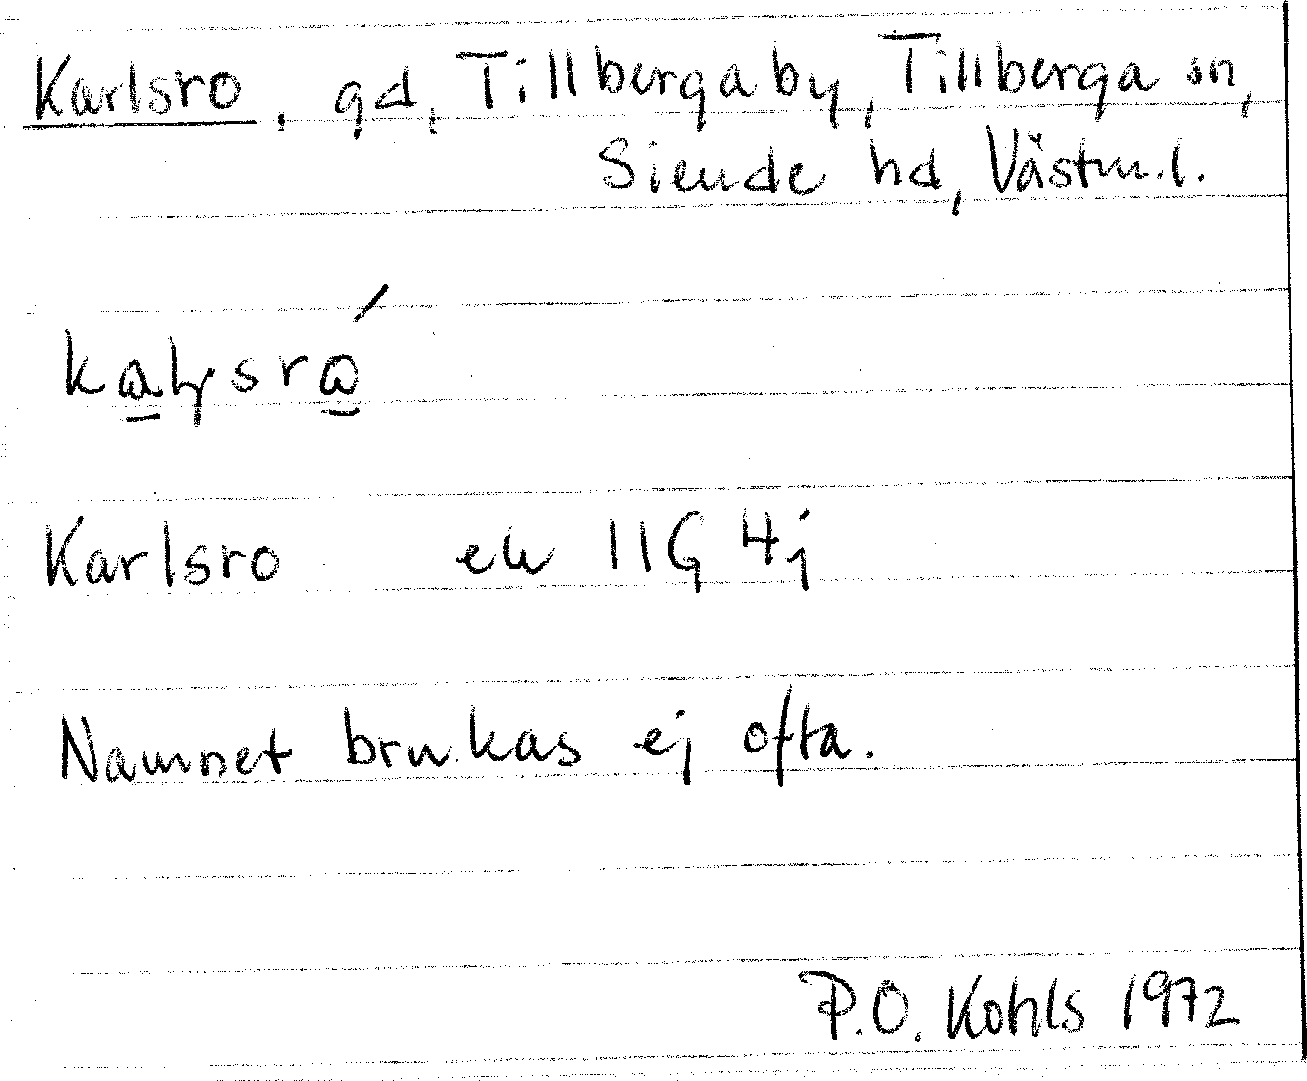 Karlsro, gd, Tillberga by, Tillberga sn,
Siende hd, Västm.l.
Karlsro ek 11G 4j
Namnet brukas ej ofta.
P.O. Kohls 1972